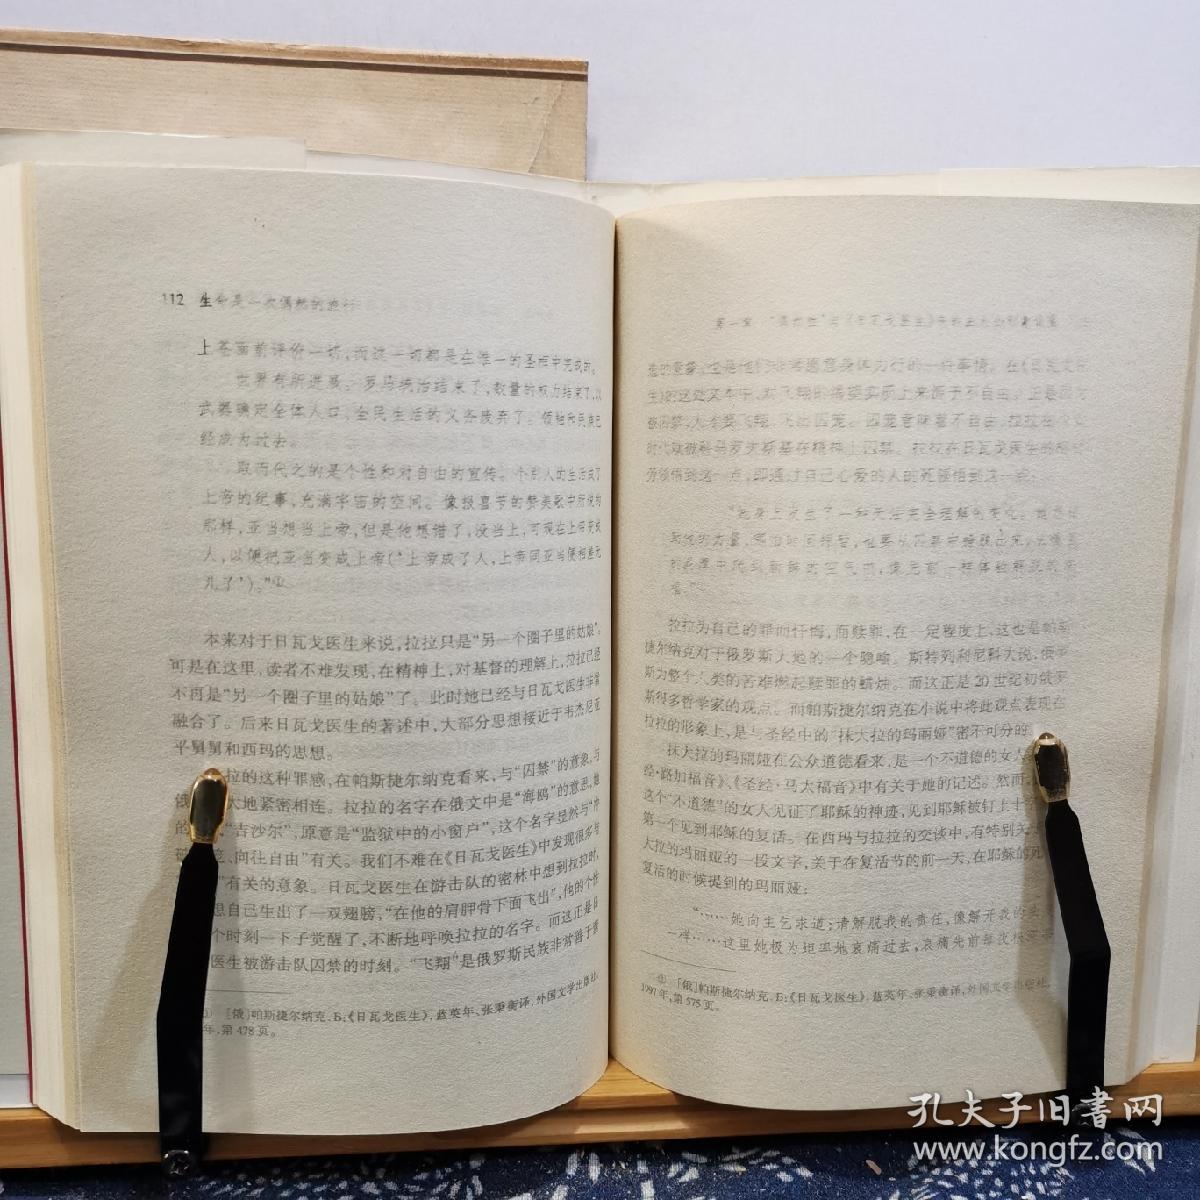 112 生命是一次偶然的旅行
上苍面前评价一切,而这一切都是在惟一的圣框中完成的。
世界有所进展。罗马统治结束了,数量的权力结束了,以
武器确定全体人口、全民生活的义务废弃了。领袖和民族已
经成为过去。
取而代之的是个性和对自由的宣传。个别人的生活成了
上帝的纪事,充满宇宙的空间。像报喜节的赞美歌中所说的
那样,亚当想当上帝,但是他想错了,没当上,可现在上帝变成
人,以便把亚当变成上帝(‘上帝成了人,上帝同亚当便相差无
几了’)。”①
本来对于日瓦戈医生来说,拉拉只是“另一个圈子里的姑娘”。
可是在这里,读者不难发现,在精神上,对基督的理解上,拉拉已经
不再是“另一个圈子里的姑娘”了。此时她已经与日瓦戈医生非常
融合了。后来日瓦戈医生的著述中,大部分思想接近于韦杰尼亚
平舅舅和西玛的思想。
拉的这种罪感,在帕斯捷尔纳克看来,与“囚禁”的意象,与
俄 大地紧密相连。拉拉的名字在俄文中是“海鸥”的意思,她
的 “吉沙尔”,原意是“监狱中的小窗户”,这个名字显然与“冲
破 笼、向往自由”有关。我们不难在《日瓦戈医生》中发现很多与
”有关的意象。日瓦戈医生在游击队的密林中想到拉拉时,
想自己生出了一双翅膀,“在他的肩胛骨下面飞出”,他的个性
个时刻一下子觉醒了,不断地呼唤拉拉的名字。而这正是日
医生被游击队囚禁的时刻。“飞翔”是俄罗斯民族非常善于营
① [俄]帕斯捷尔纳克.Б:《日瓦戈医生》,蓝英年、张秉衡译,外国文学出版社,
年,第478页。
造的意象,也是他们非常愿意身体力行的一件事情。在《日瓦戈医
生》的这处文本中,对飞翔的渴望实质上来源于不自由。正是因为
被囚禁,人才要飞翔、飞出囚笼。囚笼意味着不自由,拉拉在少女
时代就被科马罗夫斯基在精神上囚禁。拉拉在日瓦戈医生的
旁领悟到这一点,即通过自己心爱的人的死领悟到这一点:
拉拉为自己的罪而忏悔,而赎罪,在一定程度上,这也是帕斯
捷尔纳克对于俄罗斯大地的一个隐喻。斯特列利尼科夫说,俄罗
斯为整个人类的苦难燃起赎罪的蜡烛。而这正是20世纪初俄罗
斯很多哲学家的观点。而帕斯捷尔纳克在小说中将此观点表现在
拉拉的形象上,是与圣经中的“抹大拉的玛丽娅”密不可分的。
抹大拉的玛丽娅在公众道德看来,是一个不道德的女人
经·路加福音》、《圣经·马太福音》中有关于她的记述。然而
这个“不道德”的女人见证了耶稣的神迹,见到耶稣被钉上十字
第一个见到耶稣的复活。在西玛与拉拉的交谈中,有特别关
大拉的玛丽娅的一段文字,关于在复活节的前一天,在耶稣的死
复活的时候提到的玛丽娅:
“……她向主乞求道:请解脱我的责任,像解开我的头
一样……这里她极为坦率地哀痛过去,哀痛先前每次
① [俄]帕斯捷尔纳克.Б:《日瓦戈医生》,蓝英年、张秉衡译,外国文学出版社,
1997年,第575页。
孔夫子旧书网
www.kongfz.com